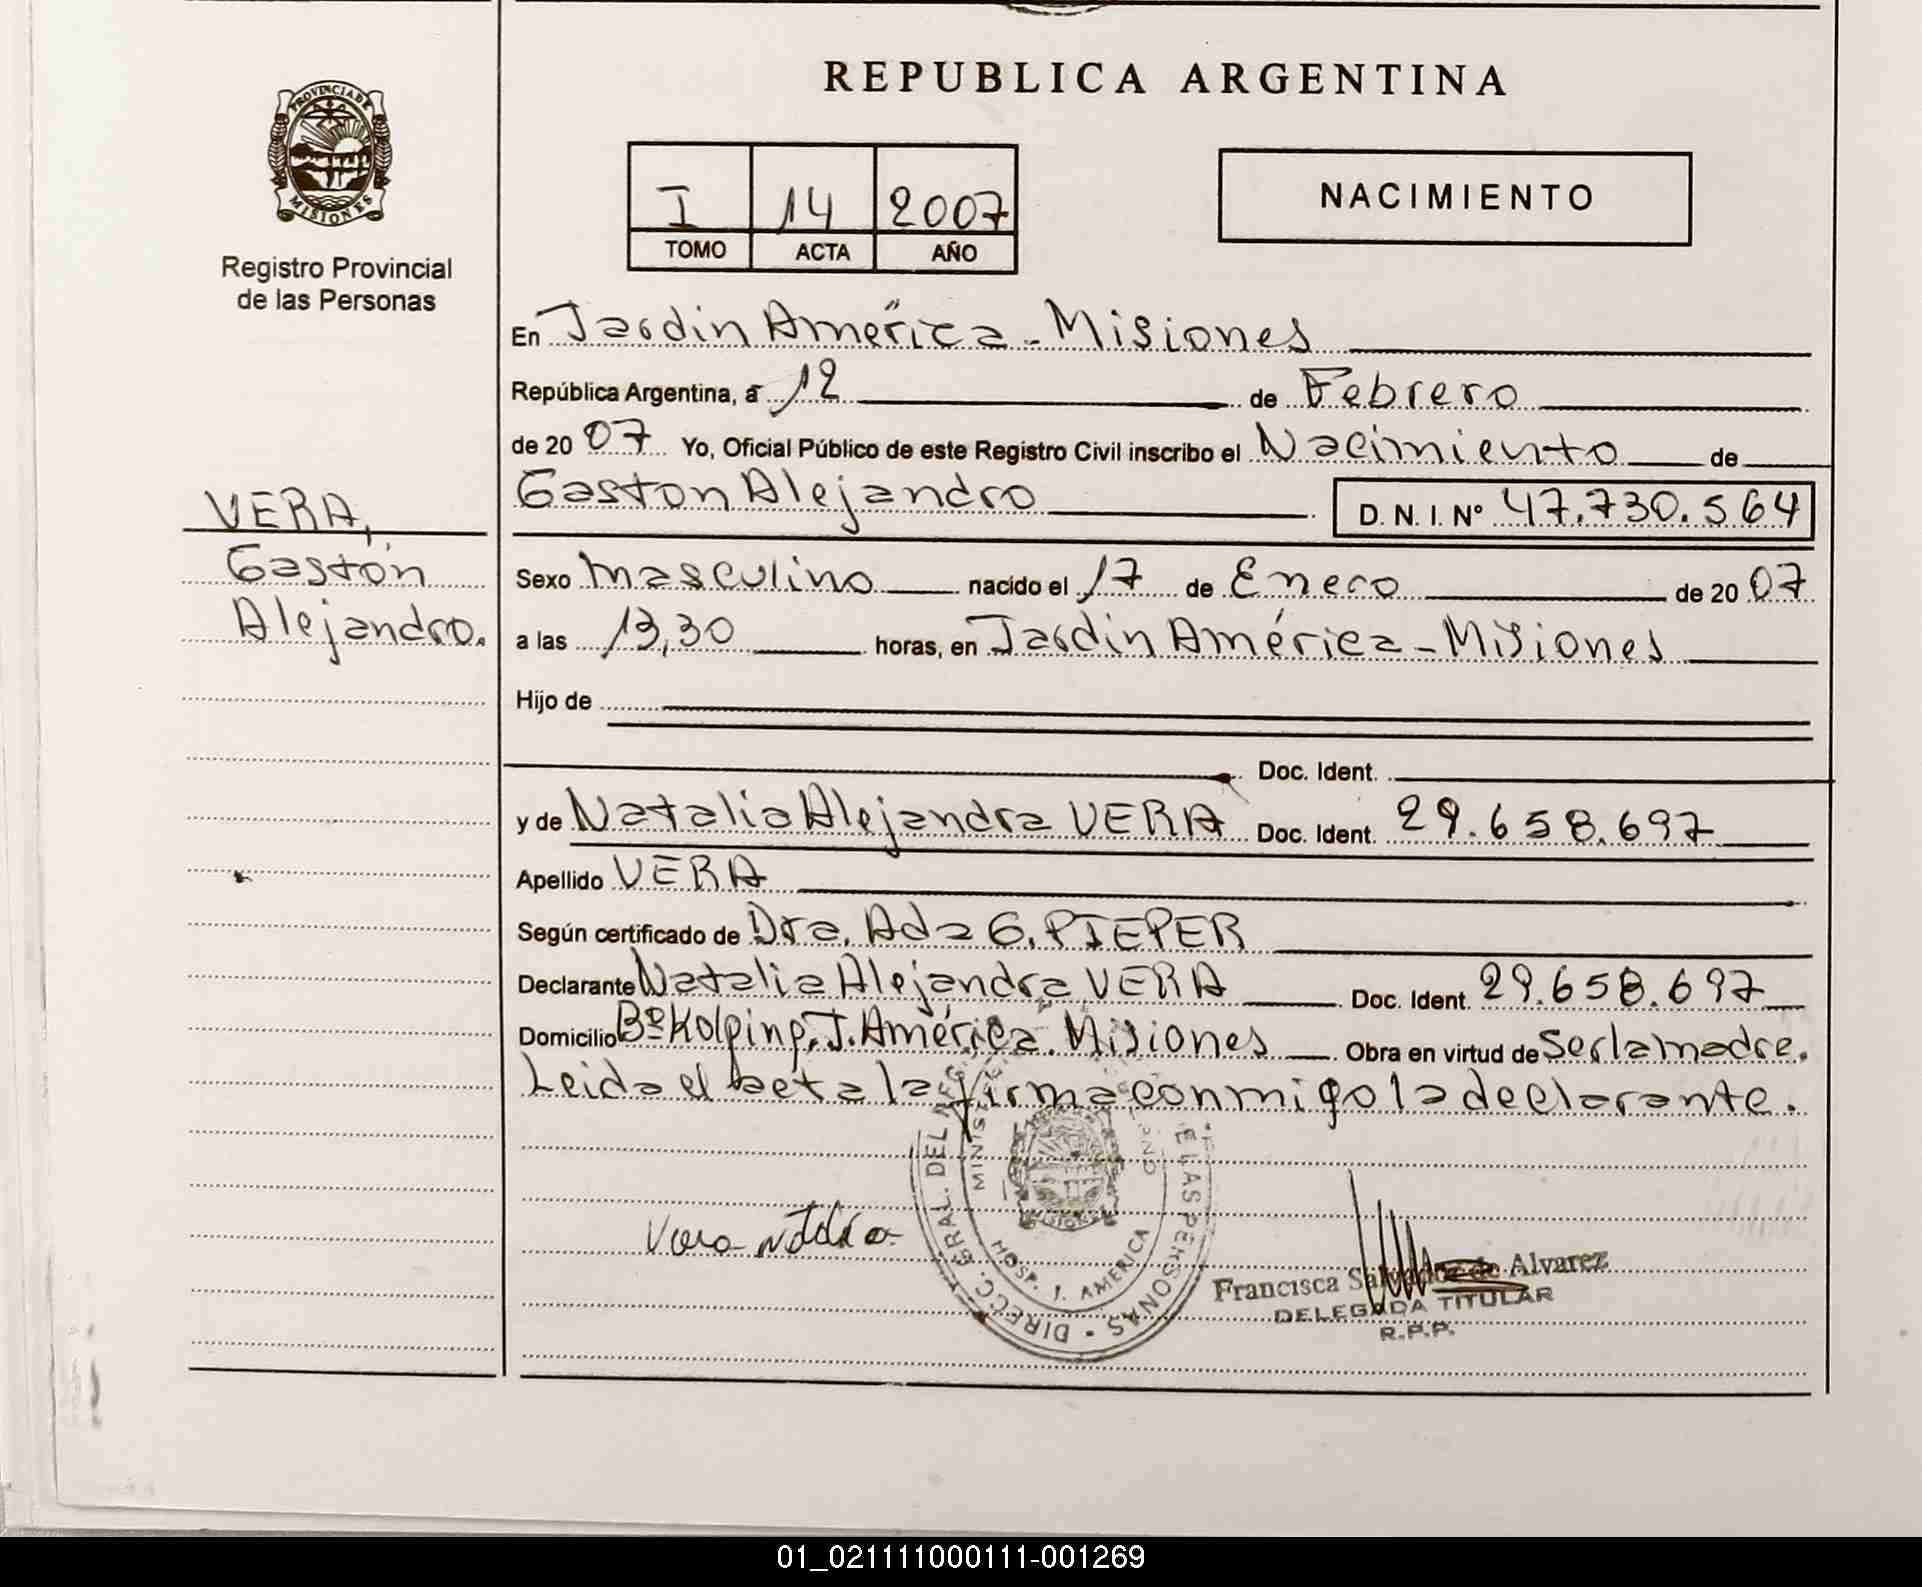 REPUBLICA ARGENTINA
PROVINCIA DE
MISIONES
Registro Provincial
de las Personas
I 14 2007
TOMO ACTA AÑO
NACIMIENTO
En Jardin América - Misiones
República Argentina, a 12 de Febrero
de 2007 Yo, Oficial Público de este Registro Civil inscribo el Nacimiento de
Gaston Alejandro D. N. I. Nº 47.730.564
VERA,
Gastón
Alejandro.
Sexo masculino nacido el 17 de Enero de 2007
a las 13,30 horas, en Jardin América - Misiones
Hijo de
Doc. Ident.
y de Natalia Alejandra VERA Doc. Ident. 29.658.697
Apellido VERA
Según certificado de Dra. Ada G. PIEPER
Declarante Natalia Alejandra VERA Doc. Ident. 29.658.697
Domicilio Bº Kolping, J. América. Misiones Obra en virtud de Ser la madre.
Leida el acta la firma conmigo la declarante.
Vera Natalia
DIRECC. GRAL. DEL DE LAS PERSONAS
HOSP. J. AMERICA
Francisca Salvador de Alvarez
DELEGADA TITULAR
R.P.P.
01_021111000111-001269